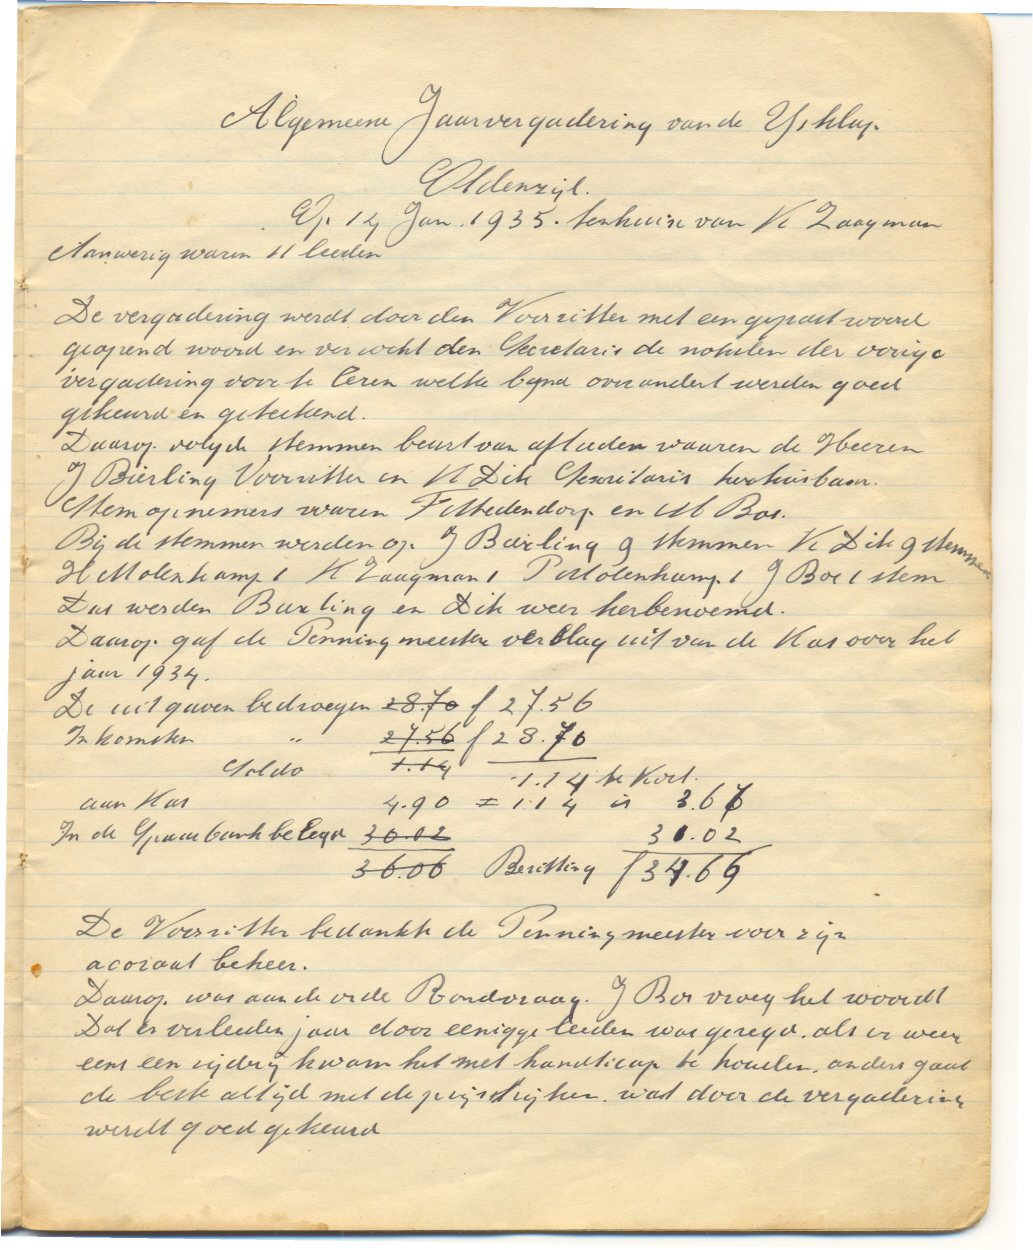 Algemeene Jaarvergadering van de Ysklup.
Oldenzijl.
Op 14 Jan. 1935. tenhuise van K Zaagman
Aanwezig waren 11 leeden
De vergadering werdt door den Voorzitter met een gepast woord
geopend woord en verzocht den Secretaris de notulen der vorige
vergadering voor te lezen welke onverandert werden goed
gekeurd en geteekend.
Daarop volgde stemmen beurt van aftreden waaren de Heeren
J Bierling Voorzitter en K Dik Secretaris herkiesbaar.
Stemopnemers waren en M Bos.
Bij de stemmen werden op J Buirling 9 stemmen K Dik 9 stemmen
H Molenkamp 1 K Zaagman 1 P Molenkamp 1 J Bos 1 stem
Dus werden Buirling en Dik weer herbenoemd.
Daarop gaf de Penningmeester verslag uit van de Kas over het
jaar 1934.
De uitgaven bedroegen 28.70 f 27.56
Inkomsten " 27.56 f 28.70
Saldo 1.14 1.14 te Kort.
aan Kas 4.90 = 1.14 is 3.66
In de Spaarbank belegd 30.02 31.02
36.06 Bezitting f 34.66
De Voorzitter bedankte de Penningmeester voor zijn
acoraat beheer.
Daarop was aan de orde Rondvraag. J Bos vroeg het woordt
Dat er verleeden jaar door eenigge leeden was gezegd. als er weer
eens een rijdrij kwam het met handicap te houden. anders gaat
de beste altijd met de prijs strijken. wat door de vergadering
werdt goed gekeurd